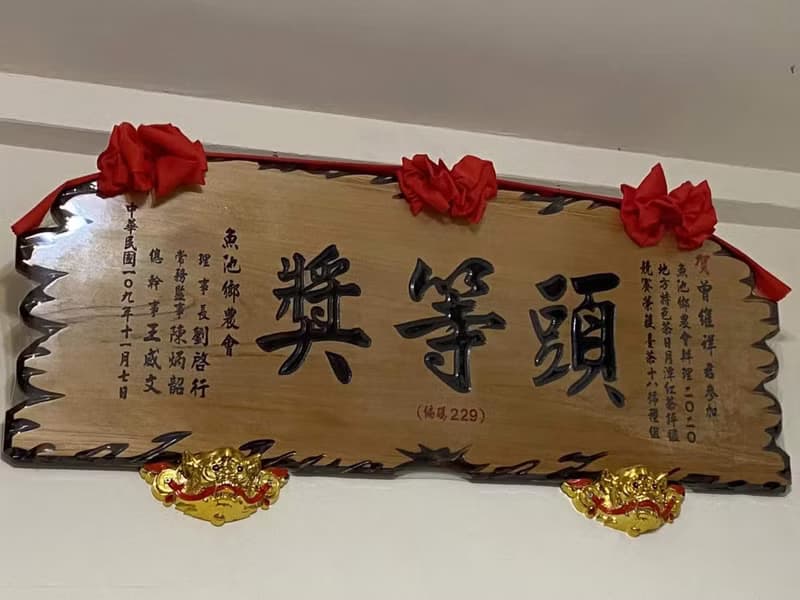 賀曾繼祥君參加
魚池鄉農會辦理二○二○
地方特色茶日月潭紅茶評鑑
競賽榮獲臺茶十八號種組
頭等獎
(編號229)
魚池鄉農會
理事長劉啓行
常務監事陳炳韶
總幹事王威文
中華民國一○九年十一月七日